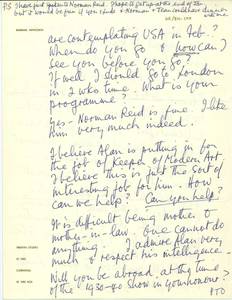 PS I have just spoken to Norman Reid. I hope to get up at the end of Jan
but it would be fun if you & Norman & I could have dinner
are contemplating USA in Feb?
When do you go & how can I
see you before you go?
If well I should go to London
in 2 wks time. What is your
programme?
Yes - Norman Reid is fine. I like
him very much indeed.
I believe Alan is putting in for
the job of Keeper of Modern Art
I believe this is just the sort of
interesting job for him. How
can we help? Can you help?
It is difficult being mother &
mother-in-law. One cannot do
anything. I admire Alan very
much & respect his intelligence.
Will you be abroad, at the time
of the 1930-40 show in your honour?
PTO